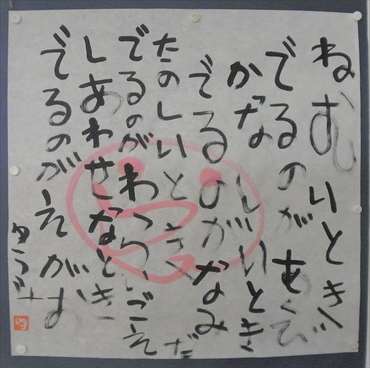 ねむいとき
でるのがあくび
かなしいとき
でるのがなみだ
たのしいとき
でるのがわらいごえ
しあわせなとき
でるのがえがお